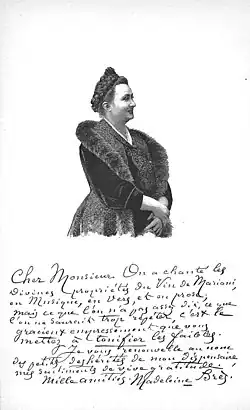 Cher Monsieur On a chanté les
Divines propriétés du Vin de Mariani
en Musique, en vers, et en prose
mais ce que l'on n'a pas assez dit, ce que
l'on ne saurait trop répéter, c'est le
gracieux empressement que vous
mettez à tonifier les faibles.
Je vous renouvelle au nom
des petits déshérités de mon dispensaire
mes sentiments de vive gratitude.
mille amitiés Madeleine Brès.